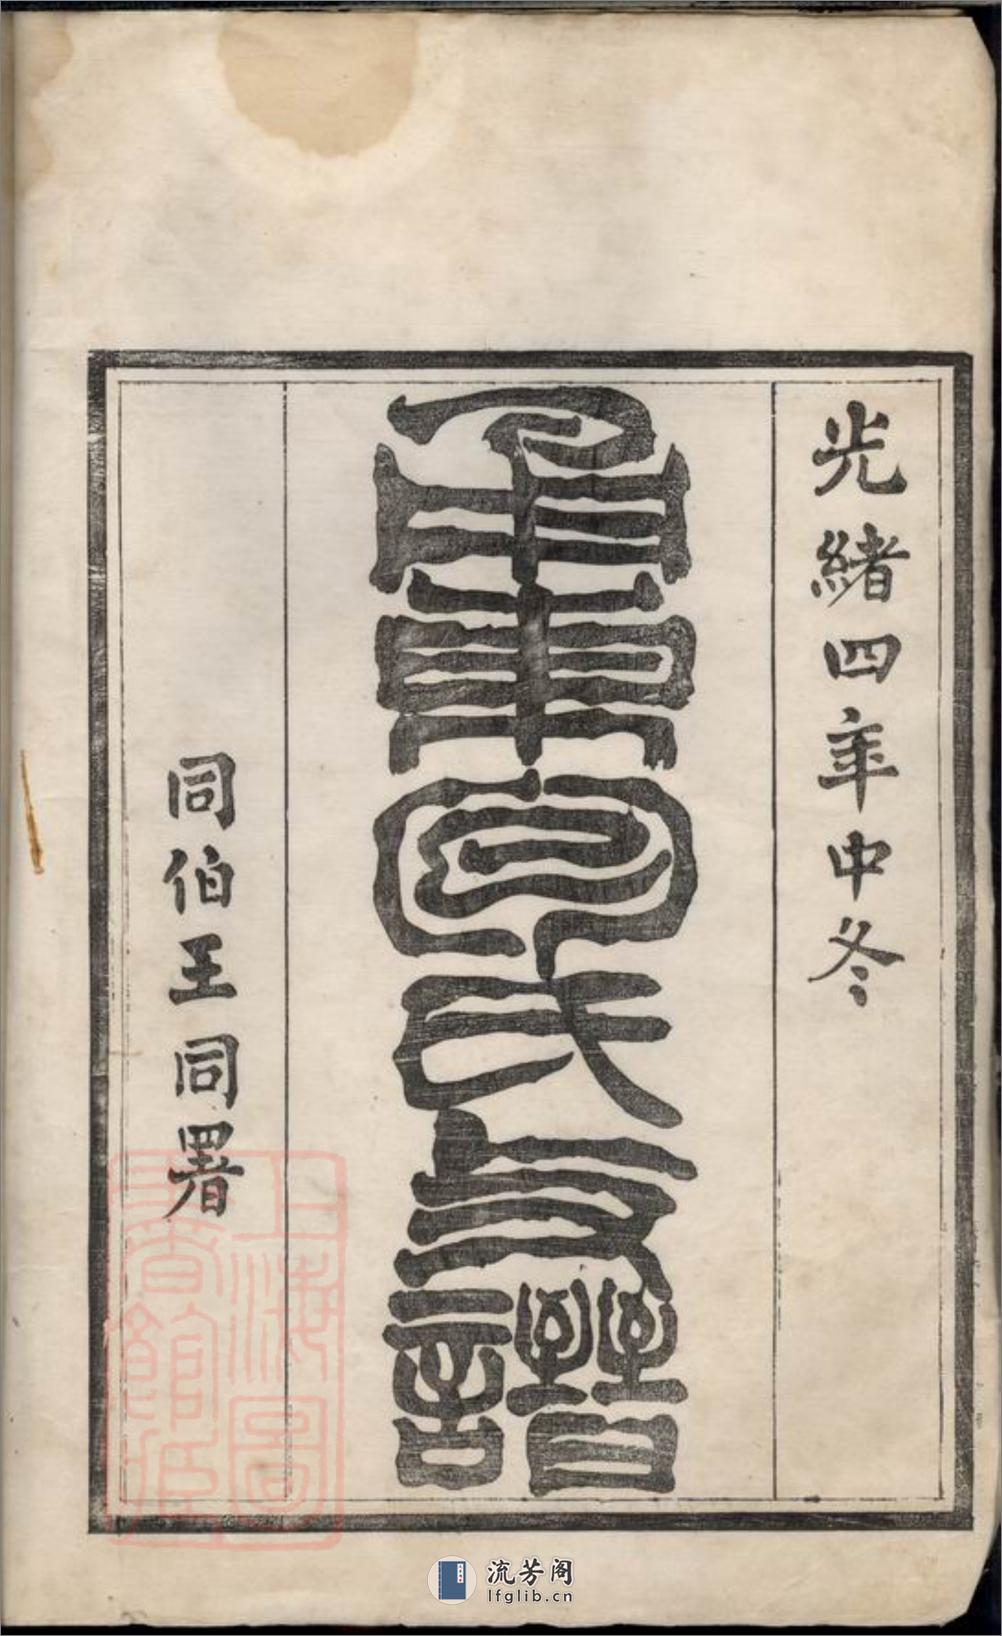 光緒四年中冬
甬東包氏支譜
同伯王同署
上海圖
書館藏
流芳阁
lfglib.cn